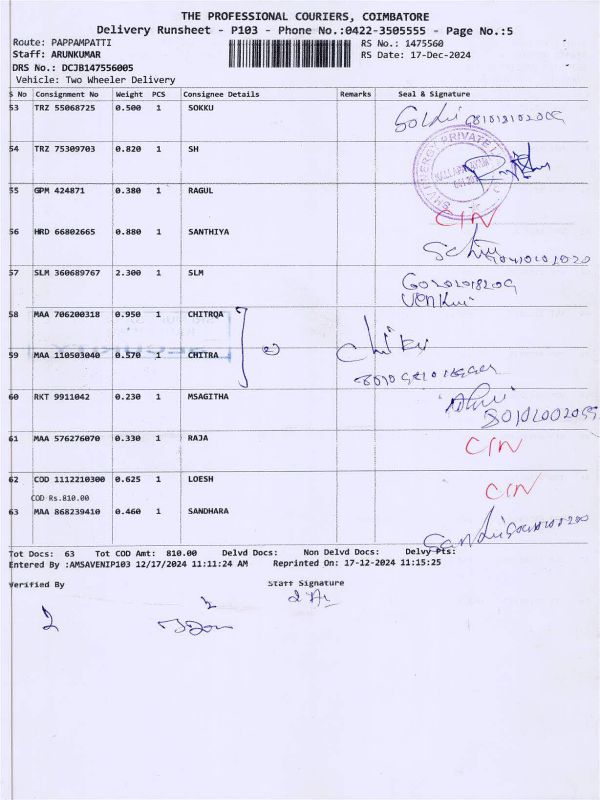 THE PROFESSIONAL COURIERS, COIMBATORE
Delivery Runsheet - P103 - Phone No.:0422-3505555 - Page No.:5
Route: PAPPAMPATTI RS No.: 1475560
Staff: ARUNKUMAR RS Date: 17-Dec-2024
DRS No.: DCJB147556005
Vehicle: Two Wheeler Delivery
S No Consignment No Weight PCS Consignee Details Remarks Seal & Signature
53 TRZ 55068725 0.500 1 SOKKU
54 TRZ 75309703 0.820 1 SH
55 GPM 424871 0.380 1 RAGUL CIN
56 HRD 66802665 0.880 1 SANTHIYA
57 SLM 360689767 2.300 1 SLM
58 MAA 706200318 0.950 1 CHITRQA
59 MAA 110503040 0.570 1 CHITRA
60 RKT 9911042 0.230 1 MSAGITHA
61 MAA 576276070 0.330 1 RAJA CIN
62 COD 1112210300 0.625 1 LOESH CIN
COD Rs.810.00
63 MAA 868239410 0.460 1 SANDHARA
Tot Docs: 63 Tot COD Amt: 810.00 Delvd Docs: Non Delvd Docs: Delvy Pts:
Entered By :AMSAVENIP103 12/17/2024 11:11:24 AM Reprinted On: 17-12-2024 11:15:25
Verified By Staff Signature